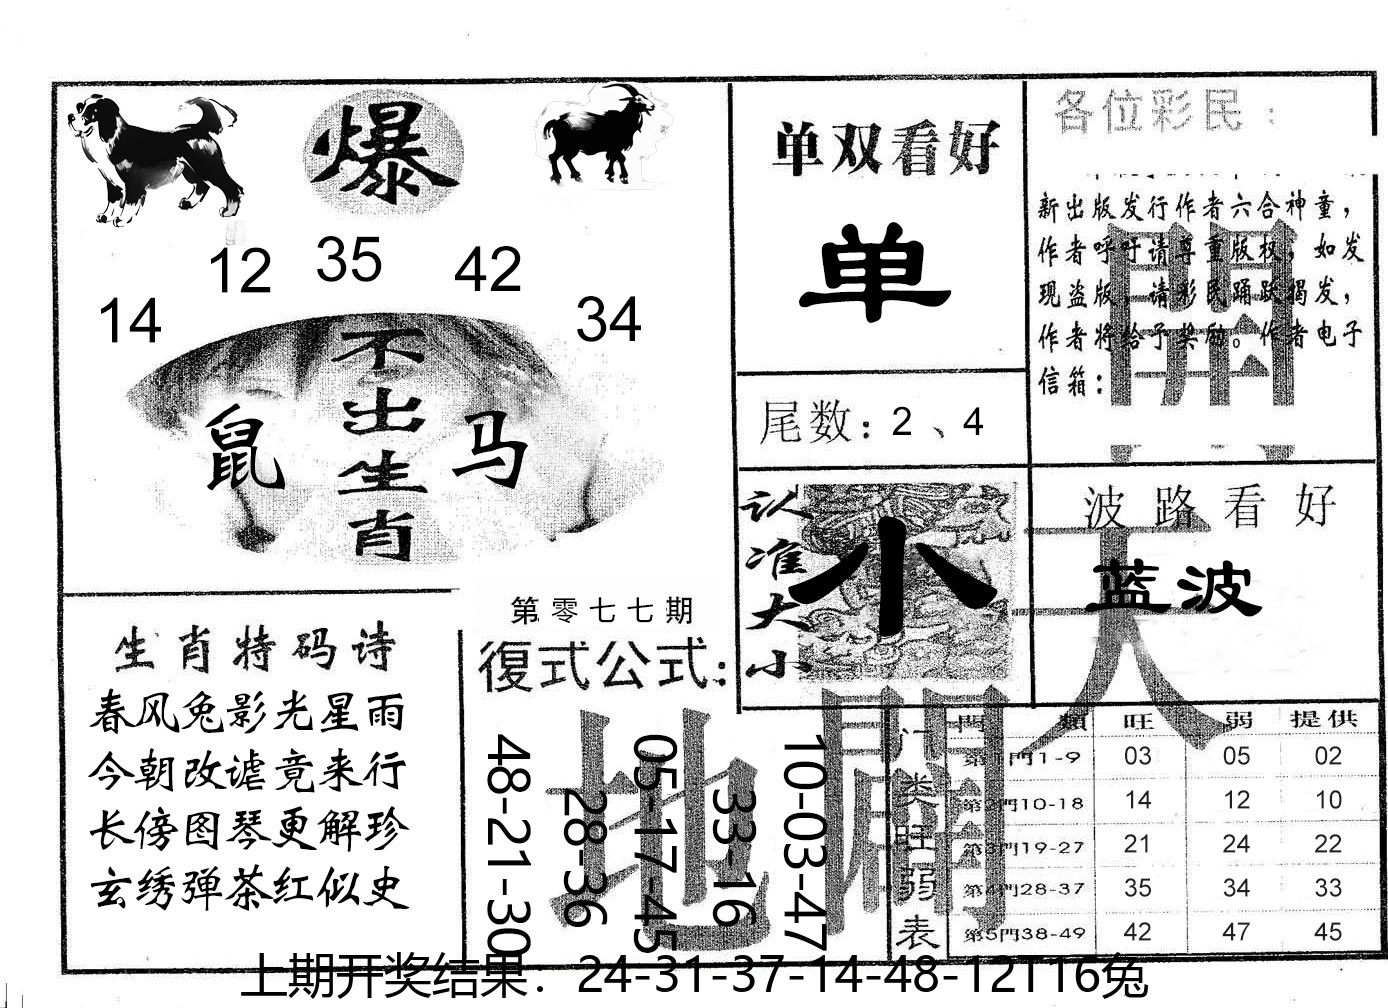 爆
12 35 42
14 34
不出生肖
鼠 马
单双看好
单
尾数：2、4
认准大小
小
各位彩民：
新出版发行作者六合神童，
作者呼吁请尊重版权，如发
现盗版，请彩民踊跃揭发，
作者将给予奖励。作者电子
信箱：
波路看好
蓝波
天
開
生肖特码诗
春风兔影光星雨
今朝改谑竟来行
长傍图琴更解珍
玄绣弹茶红似史
第零七七期
復式公式：
48-21-30
28-36
05-17-45
33-16
10-03-47
地
開
门类旺弱表
門 類 旺 弱 提供
第1門1-9 03 05 02
第2門10-18 14 12 10
第3門19-27 21 24 22
第4門28-37 35 34 33
第5門38-49 42 47 45
上期开奖结果：24-31-37-14-48-12T16兔